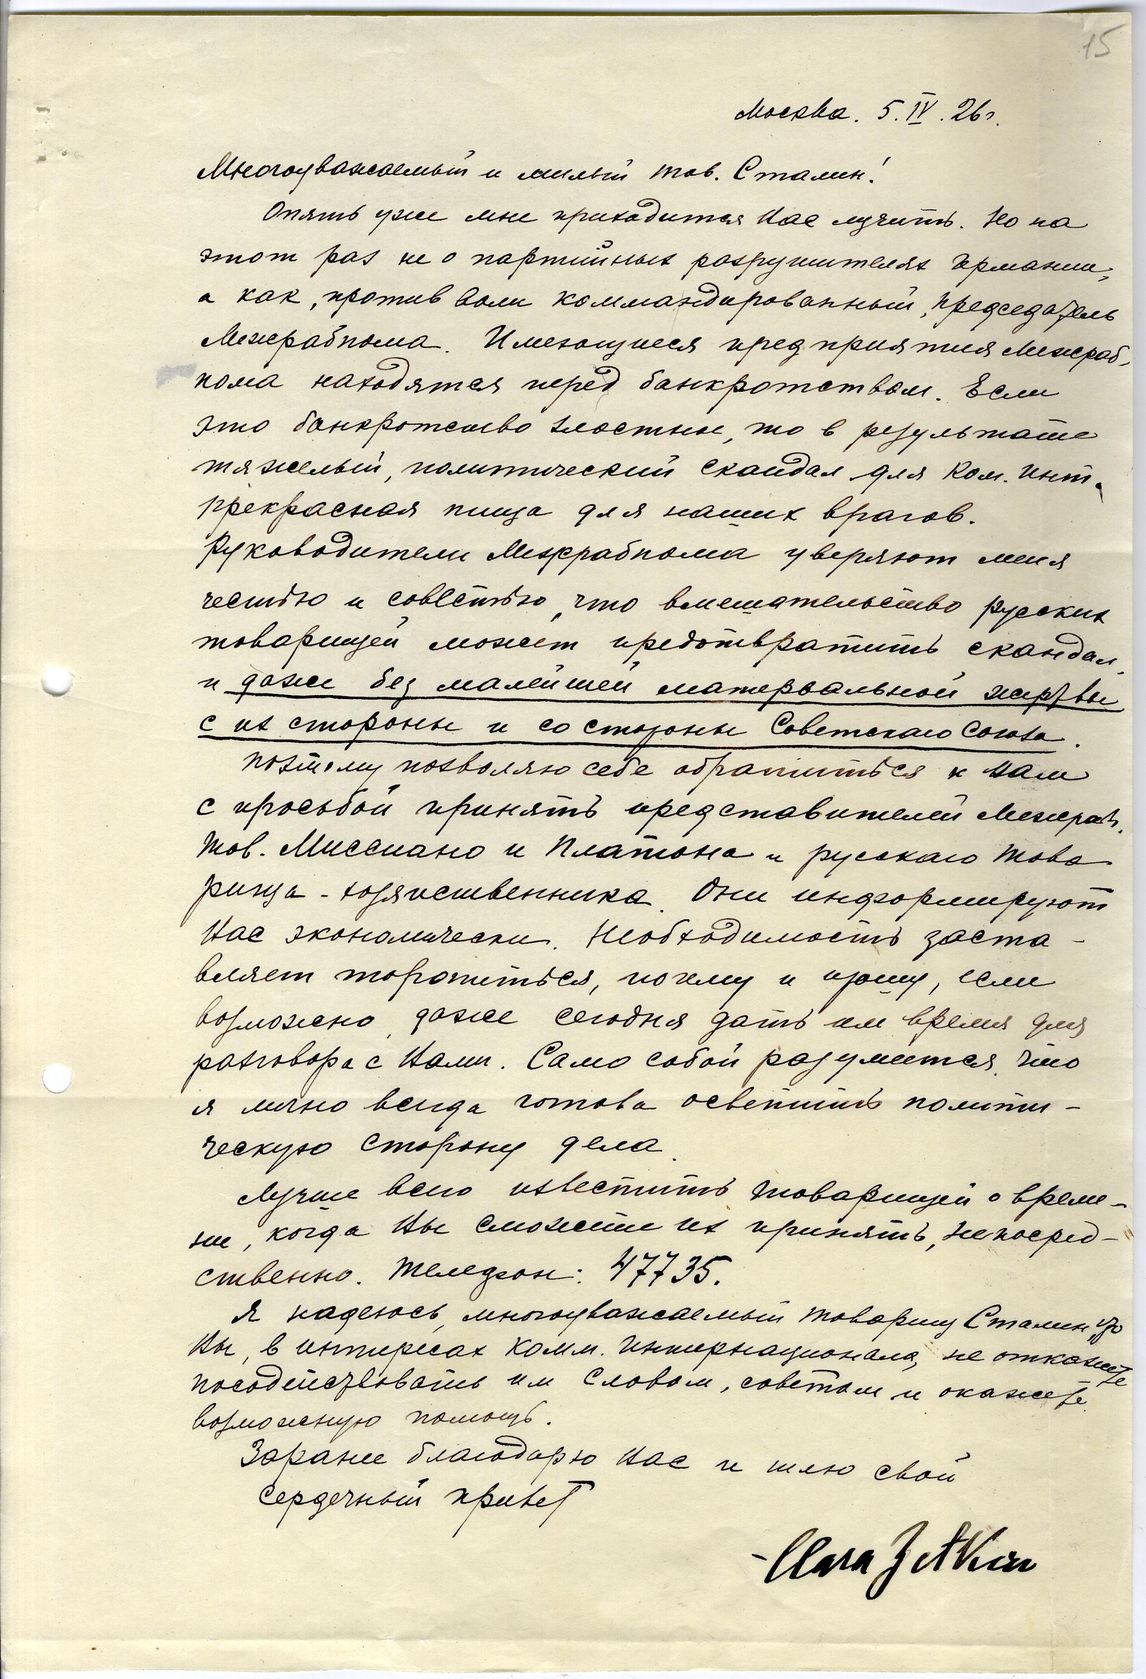 15
Москва. 5. IV. 26 г.
Многоуважаемый и милый тов. Сталин!
Опять уже мне приходится Вас мучить. Но на
этот раз не о партийных разрушителях Германии,
а как, против воли коммандированный, председатель
Межрабпома. Имеющиеся предприятия Межраб-
пома находятся перед банкротством. Если
это банкротство злостные, то в результате
тяжелый, политический скандал для Ком. Инт.
прекрасная пища для наших врагов.
Руководители Межрабпома уверяют меня
честью и совестью, что вмешательство русских
товарищей может предотвратить скандал,
и даже без малейшей матерьальной жертвы
с их стороны и со стороны Советского Союза.
Поэтому позволяю себе обратиться к Вам
с просьбой принять представителей Межраб.
Тов. Миссиано и Платона и русскаго това
рища - хозяйственника. Они информируют
Вас экономически. Необходимость заста-
вляет торопиться, почему и прошу, если
возможно, даже сегодня дать им время для
разговора с Вами. Само собой разумеется, что
я лично всегда готова осветить полити-
ческую сторону дела.
Лучше всего известить товарищей о време-
ни, когда Вы сможете их принять, непосред-
ственно. Телефон: 47735.
Я надеюсь, многоуважаемый товарищ Сталин, что
Вы, в интересах Комм. Интернационала, не откажите
посодействовать им словом, советом и окажете
возможную помощь.
Заранее благодарю Вас и шлю свой
сердечный привет
Clara Zetkin